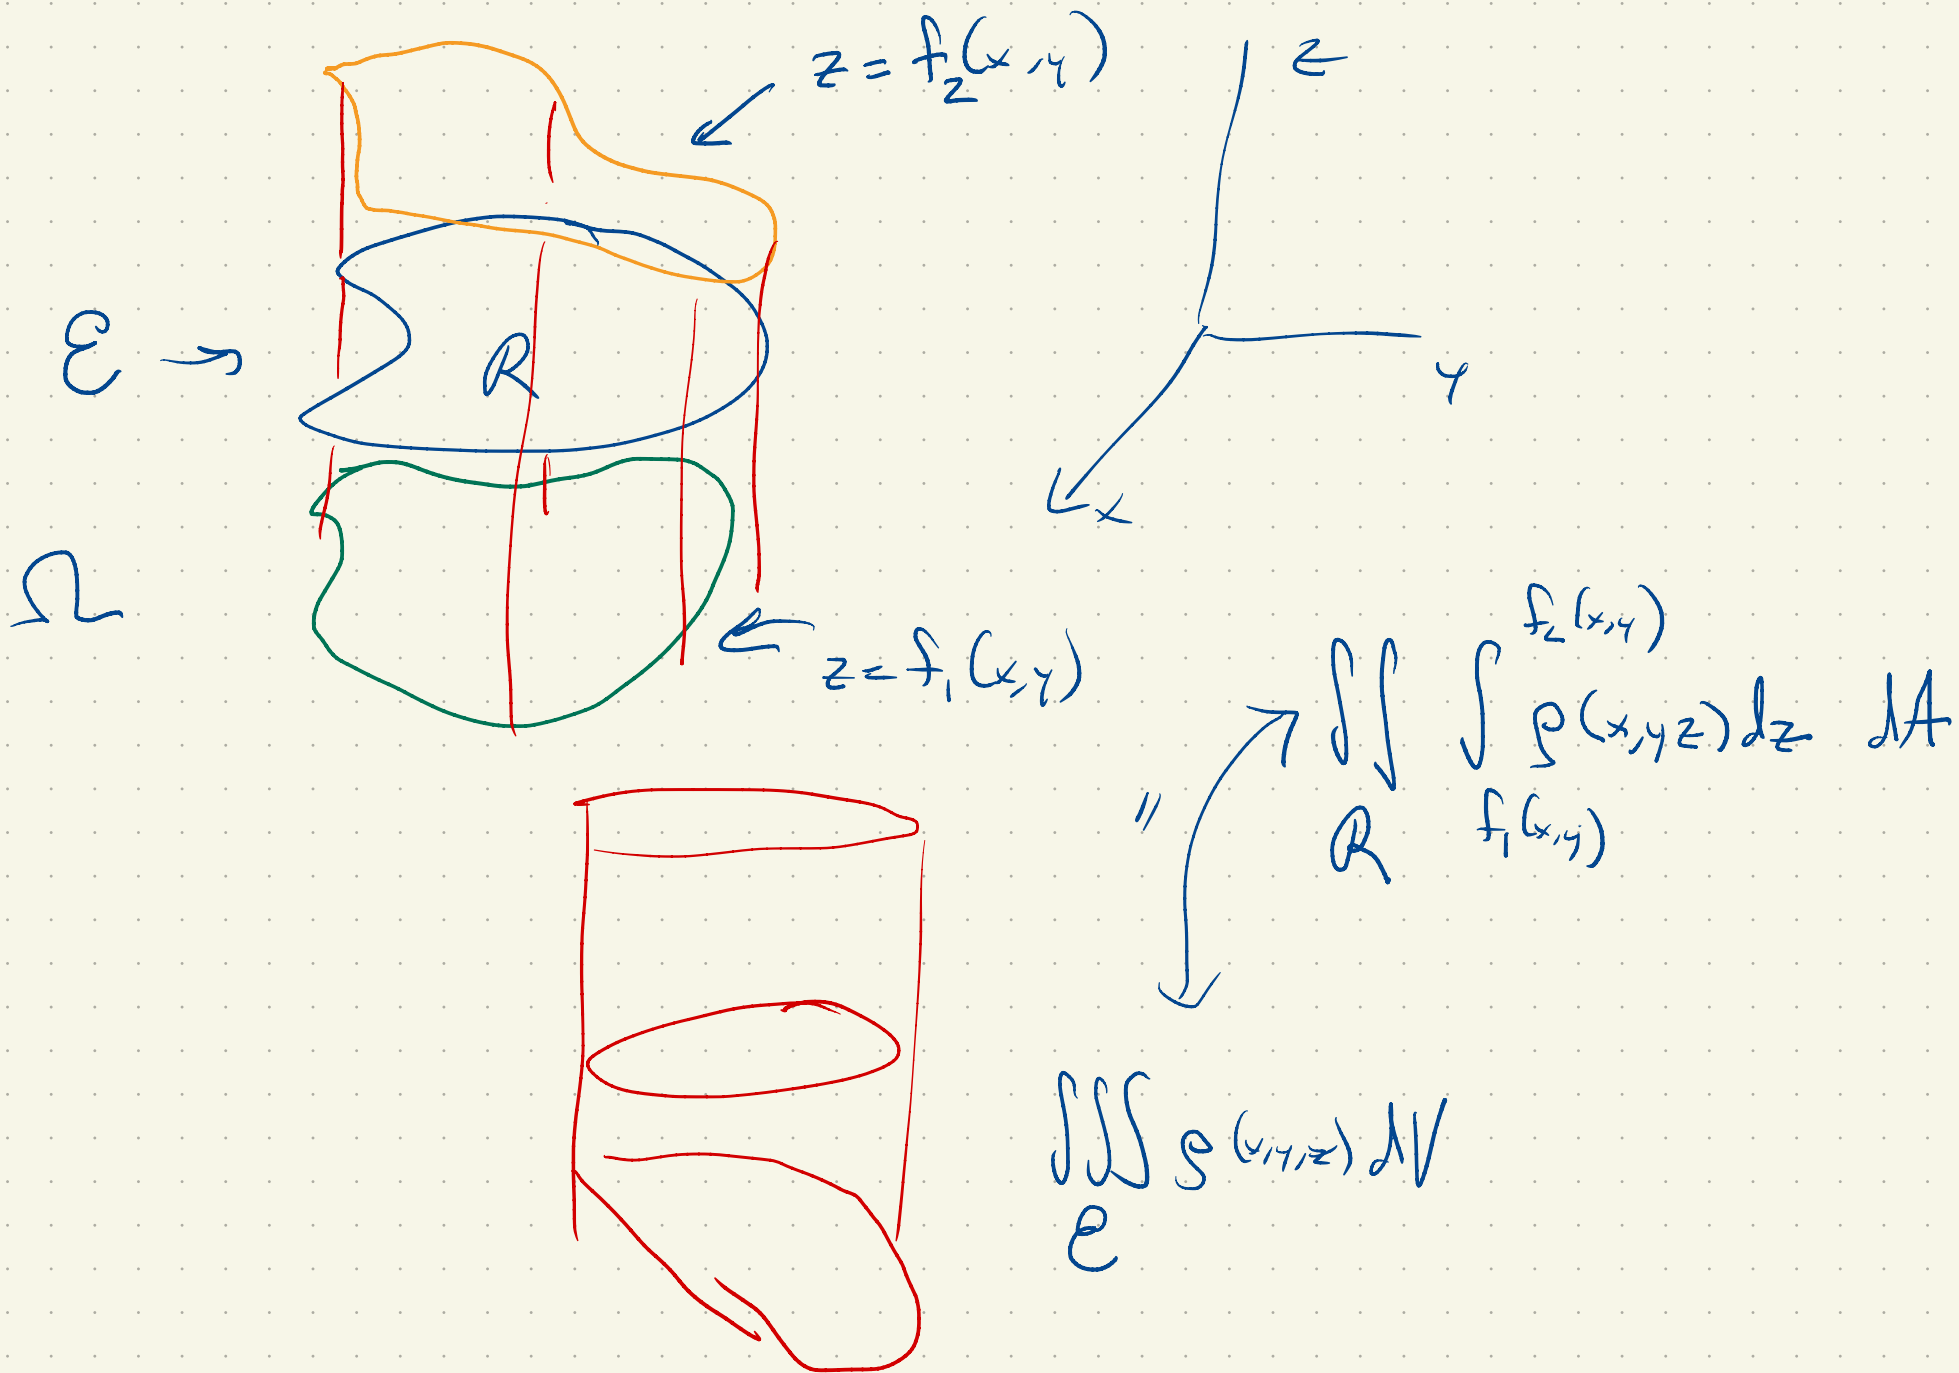 z = f₂(x,y)
z
ℰ →
R
y
x
Ω
z = f₁(x,y)
∬_R ∫_{f₁(x,y)}^{f₂(x,y)} ρ(x,y z) dz dA
"
∭_ℰ ρ(x,y,z) dV